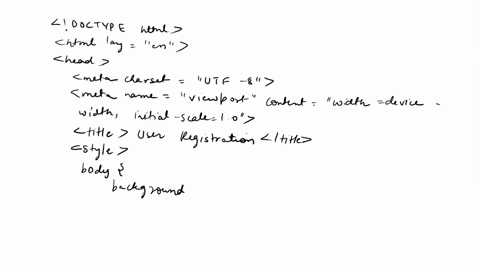 <!DOCTYPE html>
<html lang = "en">
<head>
<meta charset = "UTF-8">
<meta name = "viewport" content = "width=device-
width, initial-scale=1.0">
<title> User Registration </title>
<style>
body {
background